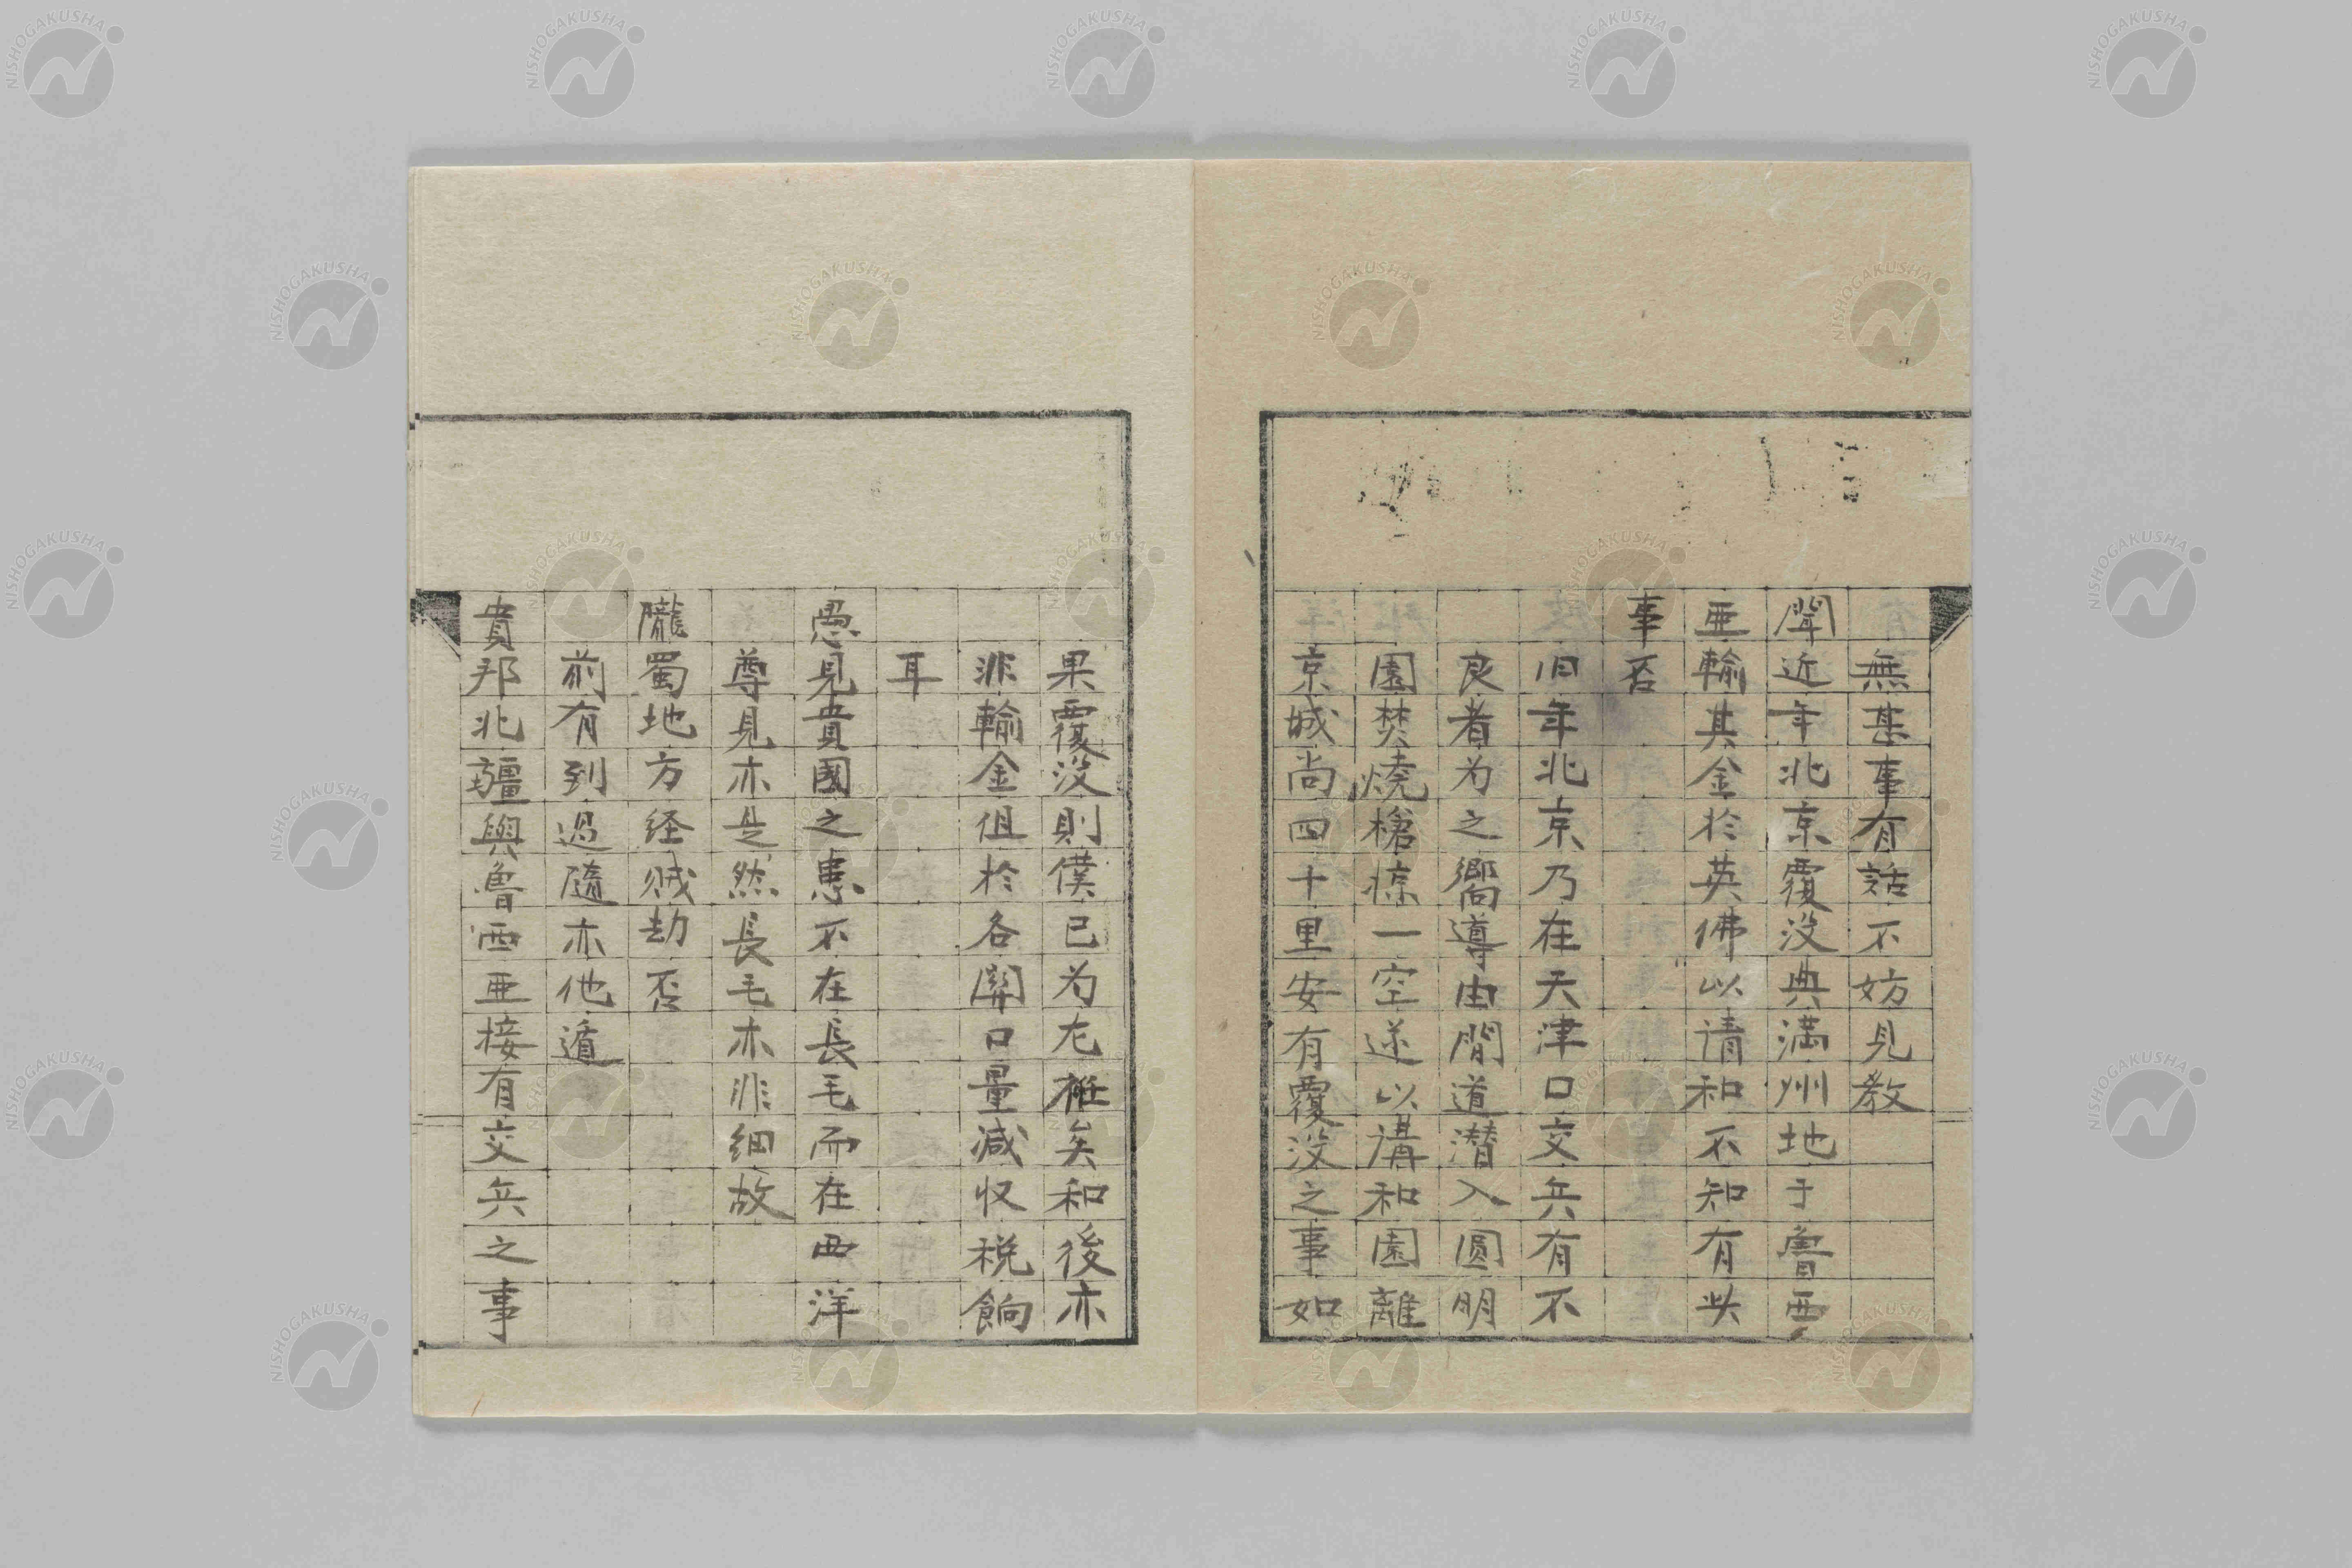 無甚事有話不妨見教
聞近年北京覆没典満州地于魯西
亜輸其金於英佛以请和不知有此
事否
旧年北京乃在天津口交兵有不
良者为之嚮導由間道潜入圆明
園焚燒槍掠一空遂以講和園離
京城尚四十里安有覆没之事如
果覆没則僕已为左袵矣和後亦
非輸金但於各関口量减収税餉
耳
愚見貴國之患不在長毛而在西洋
尊見亦是然長毛亦非細故
隴蜀地方经贼劫否
前有到過隨亦他遁
貴邦北疆與魯西亜接有交兵之事
NISHOGAKUSHA